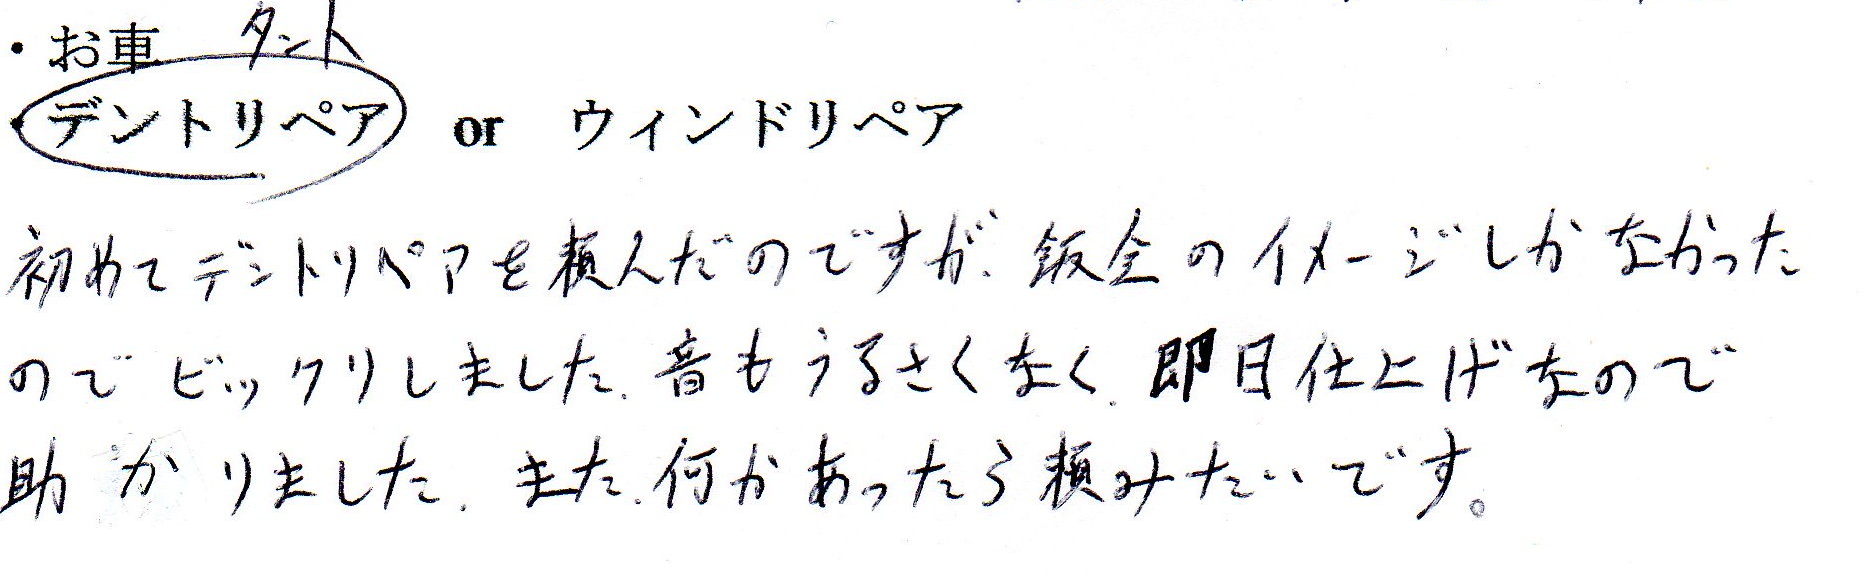 ・お車 タント
・デントリペア or ウィンドリペア
初めてデントリペアを頼んだのですが、鈑金のイメージしかなかった
のでビックリしました。音もうるさくなく、即日仕上げなので
助かりました。また、何かあったら頼みたいです。